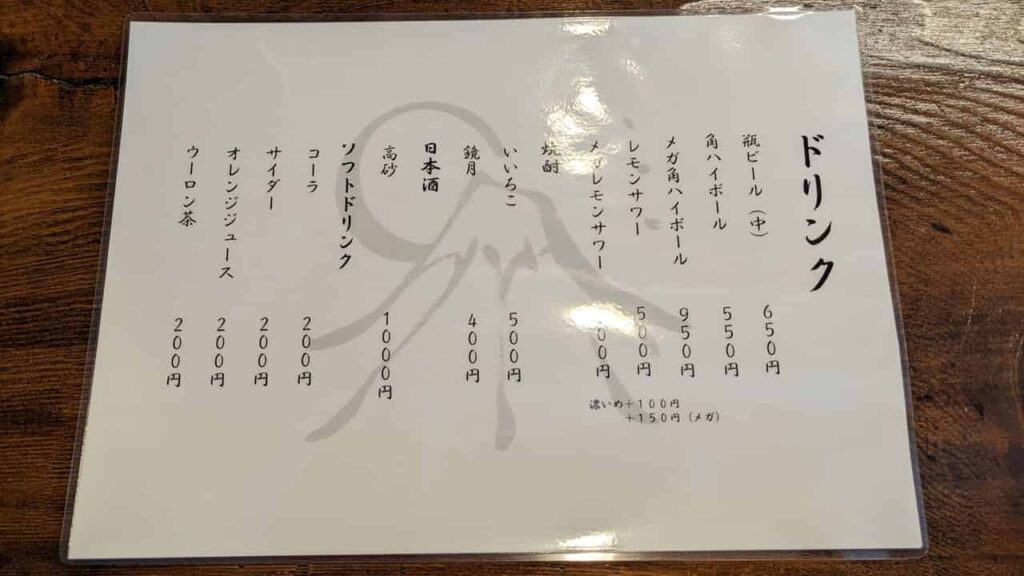 ドリンク
瓶ビール（中） 650円
角ハイボール 550円
メガ角ハイボール 950円
レモンサワー 500円
メガレモンサワー 00円
濃いめ＋100円
＋150円（メガ）
焼酎
いいちこ 500円
鏡月 400円
日本酒
高砂 1000円
ソフトドリンク
コーラ 200円
サイダー 200円
オレンジジュース 200円
ウーロン茶 200円